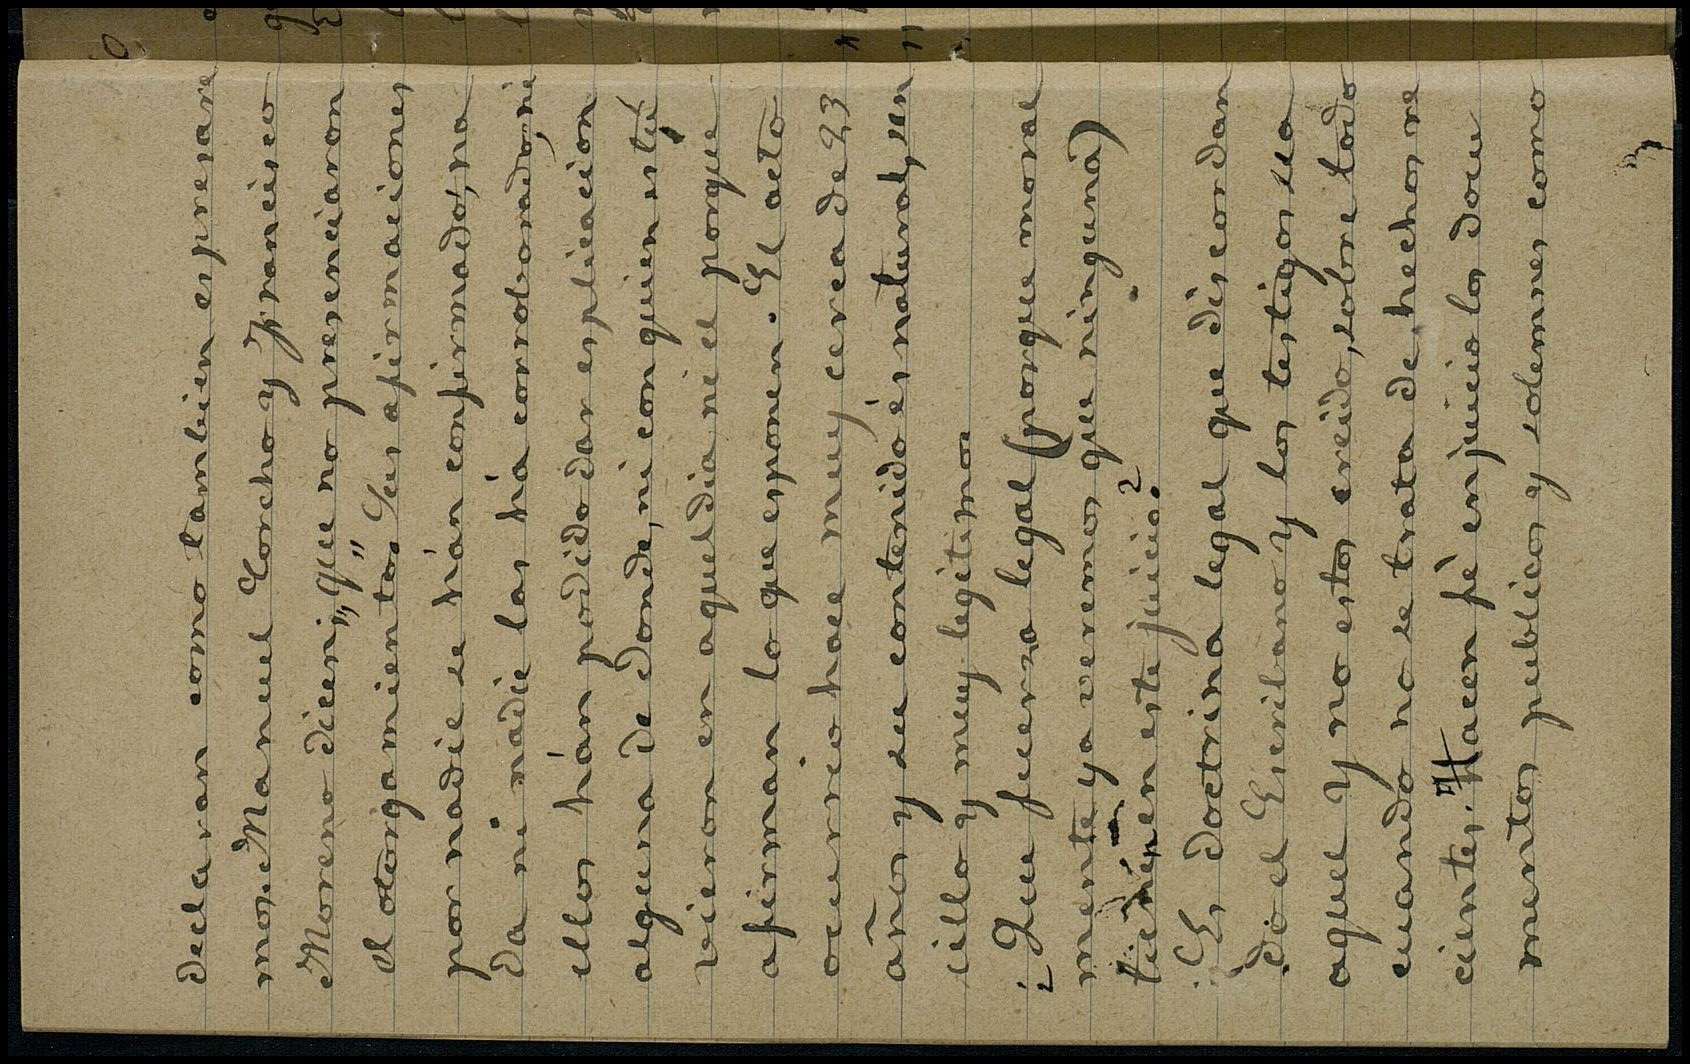 declaran como tambien espresare
mos. Manuel Corcho y Francisco
Moreno dicen: "que no presenciaron
el otorgamiento." Sus afirmaciones
por nadie se hán confirmado, na
da ni nadie las há corroborado, ni
ellos hán podido dar esplicacion
alguna de donde, ni con quien estu
vieron en aquel dia ni el porque
afirman lo que esponen. El acto
ocurrio hace muy cerca de 23
años y su contenido és natural, sen
cillo y muy legitimo
¿Que fuerza legal (porque moral
mente ya veremos que ninguna)
tienen en este juicio?
Es doctrina legal que discordan
do el Escribano y los testigos sea
aquel y no estos creido, sobre todo
cuando no se trata de hechos re
cientes. Hacen fè en juicio los docu
mentos publicos y solemnes como